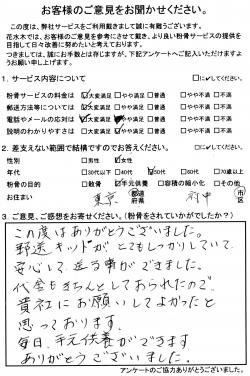 お客様のご意見をお聞かせください。
この度は、弊社サービスをご利用戴きまして誠に有難うございます。
花水木では、お客様のご意見を参考にさせて戴き、より良い粉骨サービスの提供を
目指して日々改善に努めたいと考えております。
つきましては、誠にお手数とは存じますが、下記アンケートへご記入いただけますよ
うお願い申し上げます。
1. サービス内容について □に✓してください。
粉骨サービスの料金は □大変満足 □満足 □普通 □やや不満 □不満
郵送方法等については □大変満足 □満足 □普通 □やや不満 □不満
電話やメールの応対は □大変満足 □満足 □普通 □やや不満 □不満
説明のわかりやすさは □大変満足 □満足 □普通 □やや不満 □不満
2. 差支えない範囲で結構ですのでお答えください。 □に✓してください。
性別 □男性 □女性
年代 □30代以下 □40代 □50代 □60代 □70歳以上
粉骨の目的 □散骨 □手元供養 □容積の縮小化 □その他
お住まい 東京 都道府県 府中 市区
3. ご意見、ご感想をお寄せください。(粉骨をされていかがでしたか?)
この度はありがとうございました。
郵送キットがとてもしっかりしていて
安心して送る事ができました。
代金もきちんとしておられたので、
貴社にお願いしてよかったと
思っております。
毎日、手元供養ができます
ありがとうございました。
アンケートのご協力ありがとうございました。